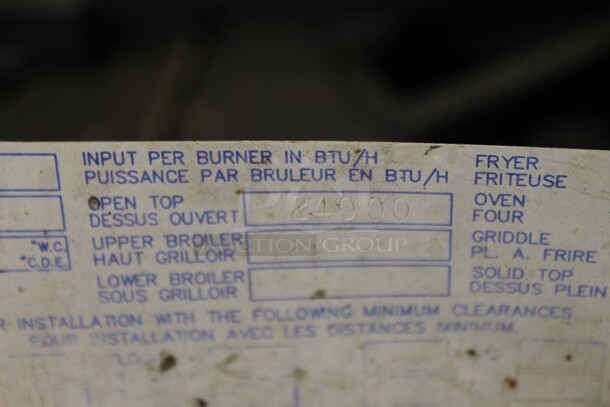 INPUT PER BURNER IN BTU/H
PUISSANCE PAR BRULEUR EN BTU/H
FRYER
FRITEUSE
OPEN TOP
DESSUS OUVERT
24000
OVEN
FOUR
"W.C.
"C.D.E.
UPPER BROILER
HAUT GRILLOIR
GRIDDLE
PL. A. FRIRE
LOWER BROILER
SOUS GRILLOIR
SOLID TOP
DESSUS PLEIN
R INSTALLATION WITH THE FOLLOWING MINIMUM CLEARANCES
POUR INSTALLATION AVEC LES DISTANCES MINIMUM
CTION GROUP